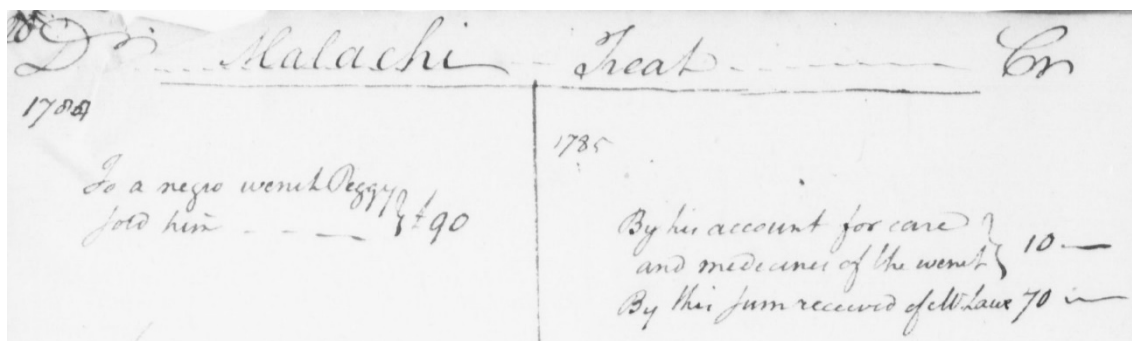 Dr Malachi Treat Cr
1784
To a negro wench Peggy
sold him £ 90
1785
By his account for care
and medecines of the wench 10
By this sum received of Mr Lawe 70